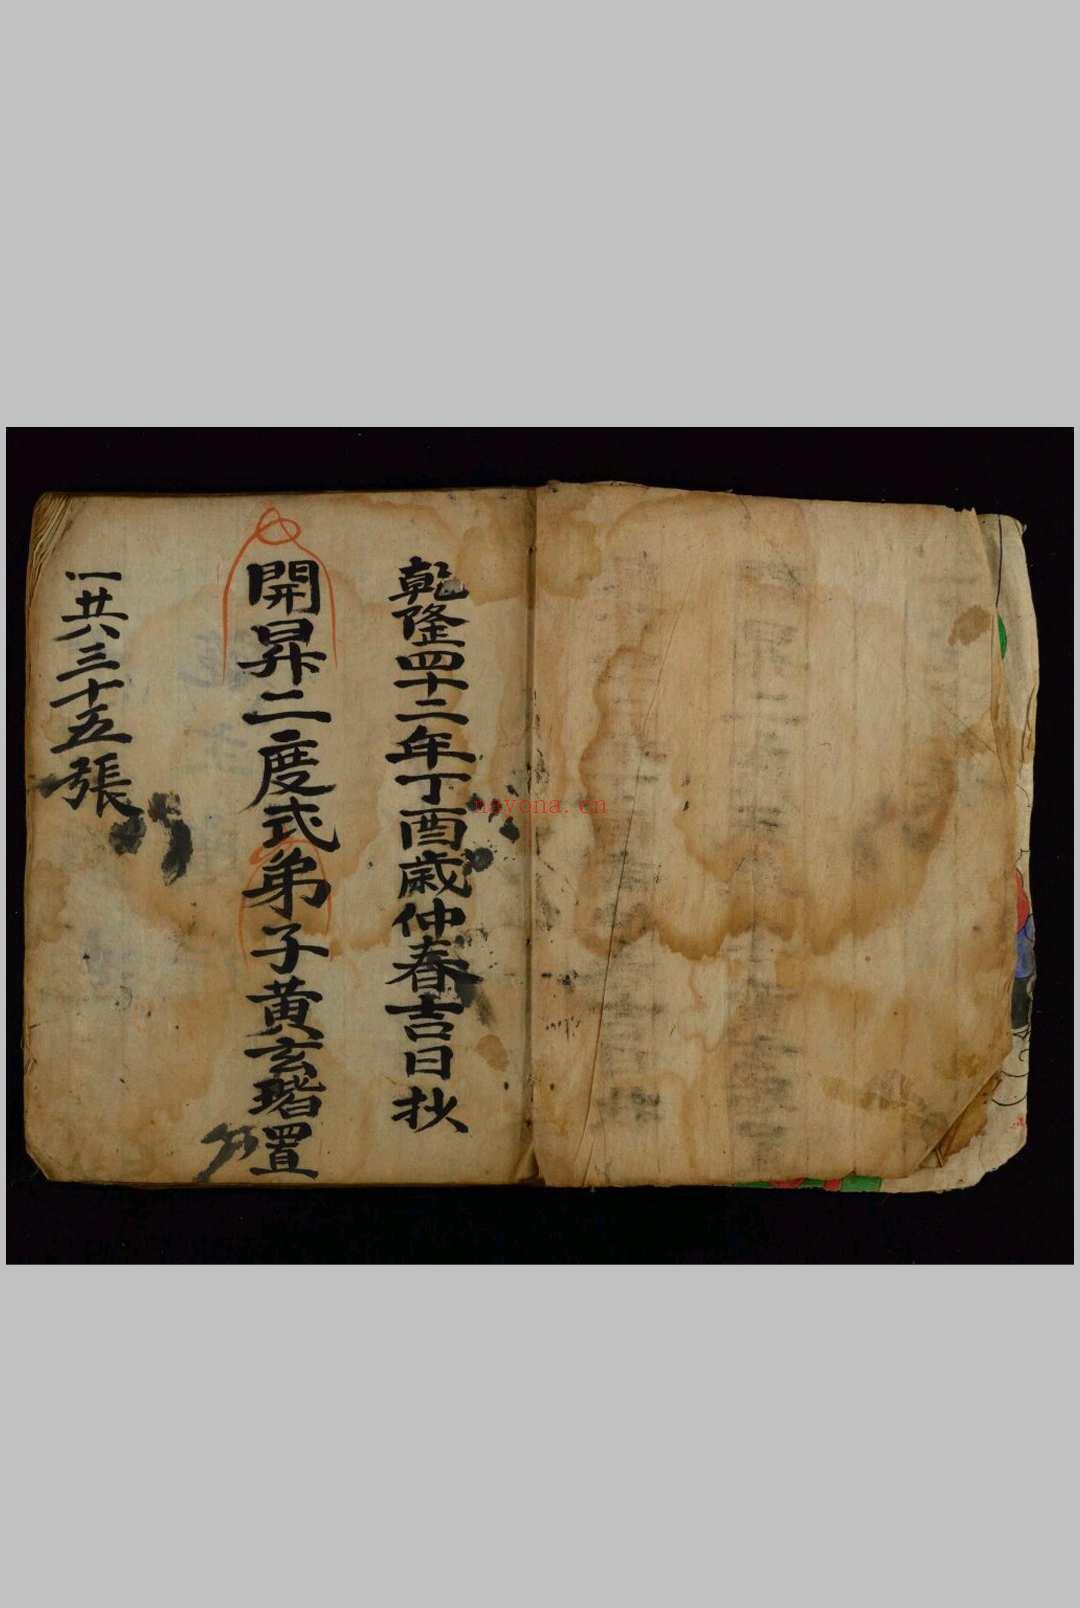 乾隆四十二年丁酉歲仲春吉日抄
開昇二度式弟子黄玄瑎置
一共三十五張
novona.cn